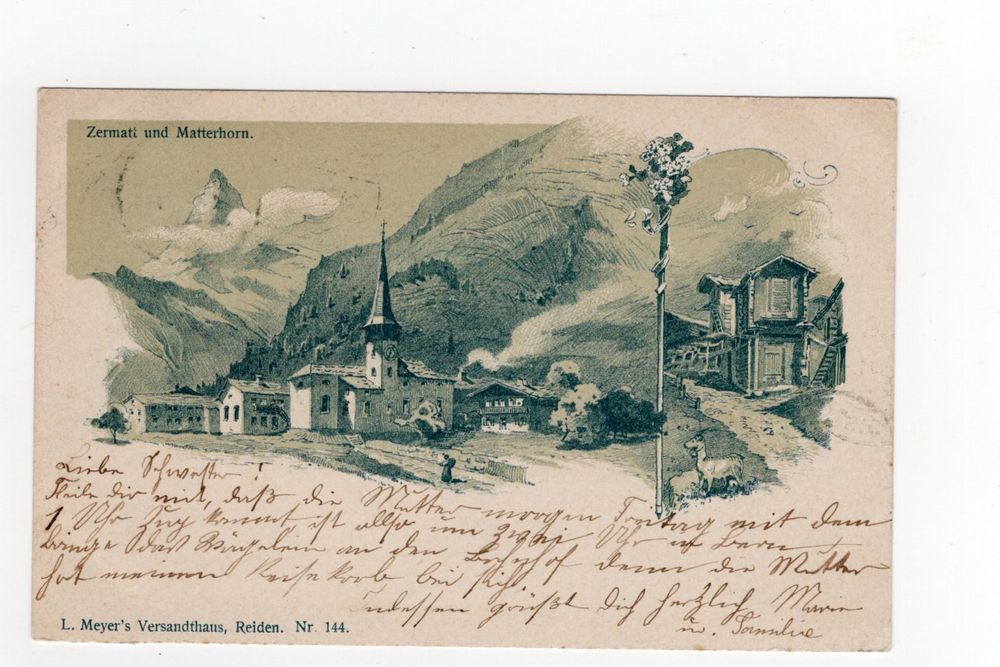 Zermatt und Matterhorn.
Liebe Schwester!
Theile dir mit, daß die Mutter morgen mit dem
1 Uhr Zug kommt ist allso um Uhr in Bern
bringe das Wägelein an den Bahnhof denn die Mutter
hat meinen Reisekorb bei sich
Indessen grüßt dich herzlich Marie
u. Familie
L. Meyer's Versandthaus, Reiden. Nr. 144.